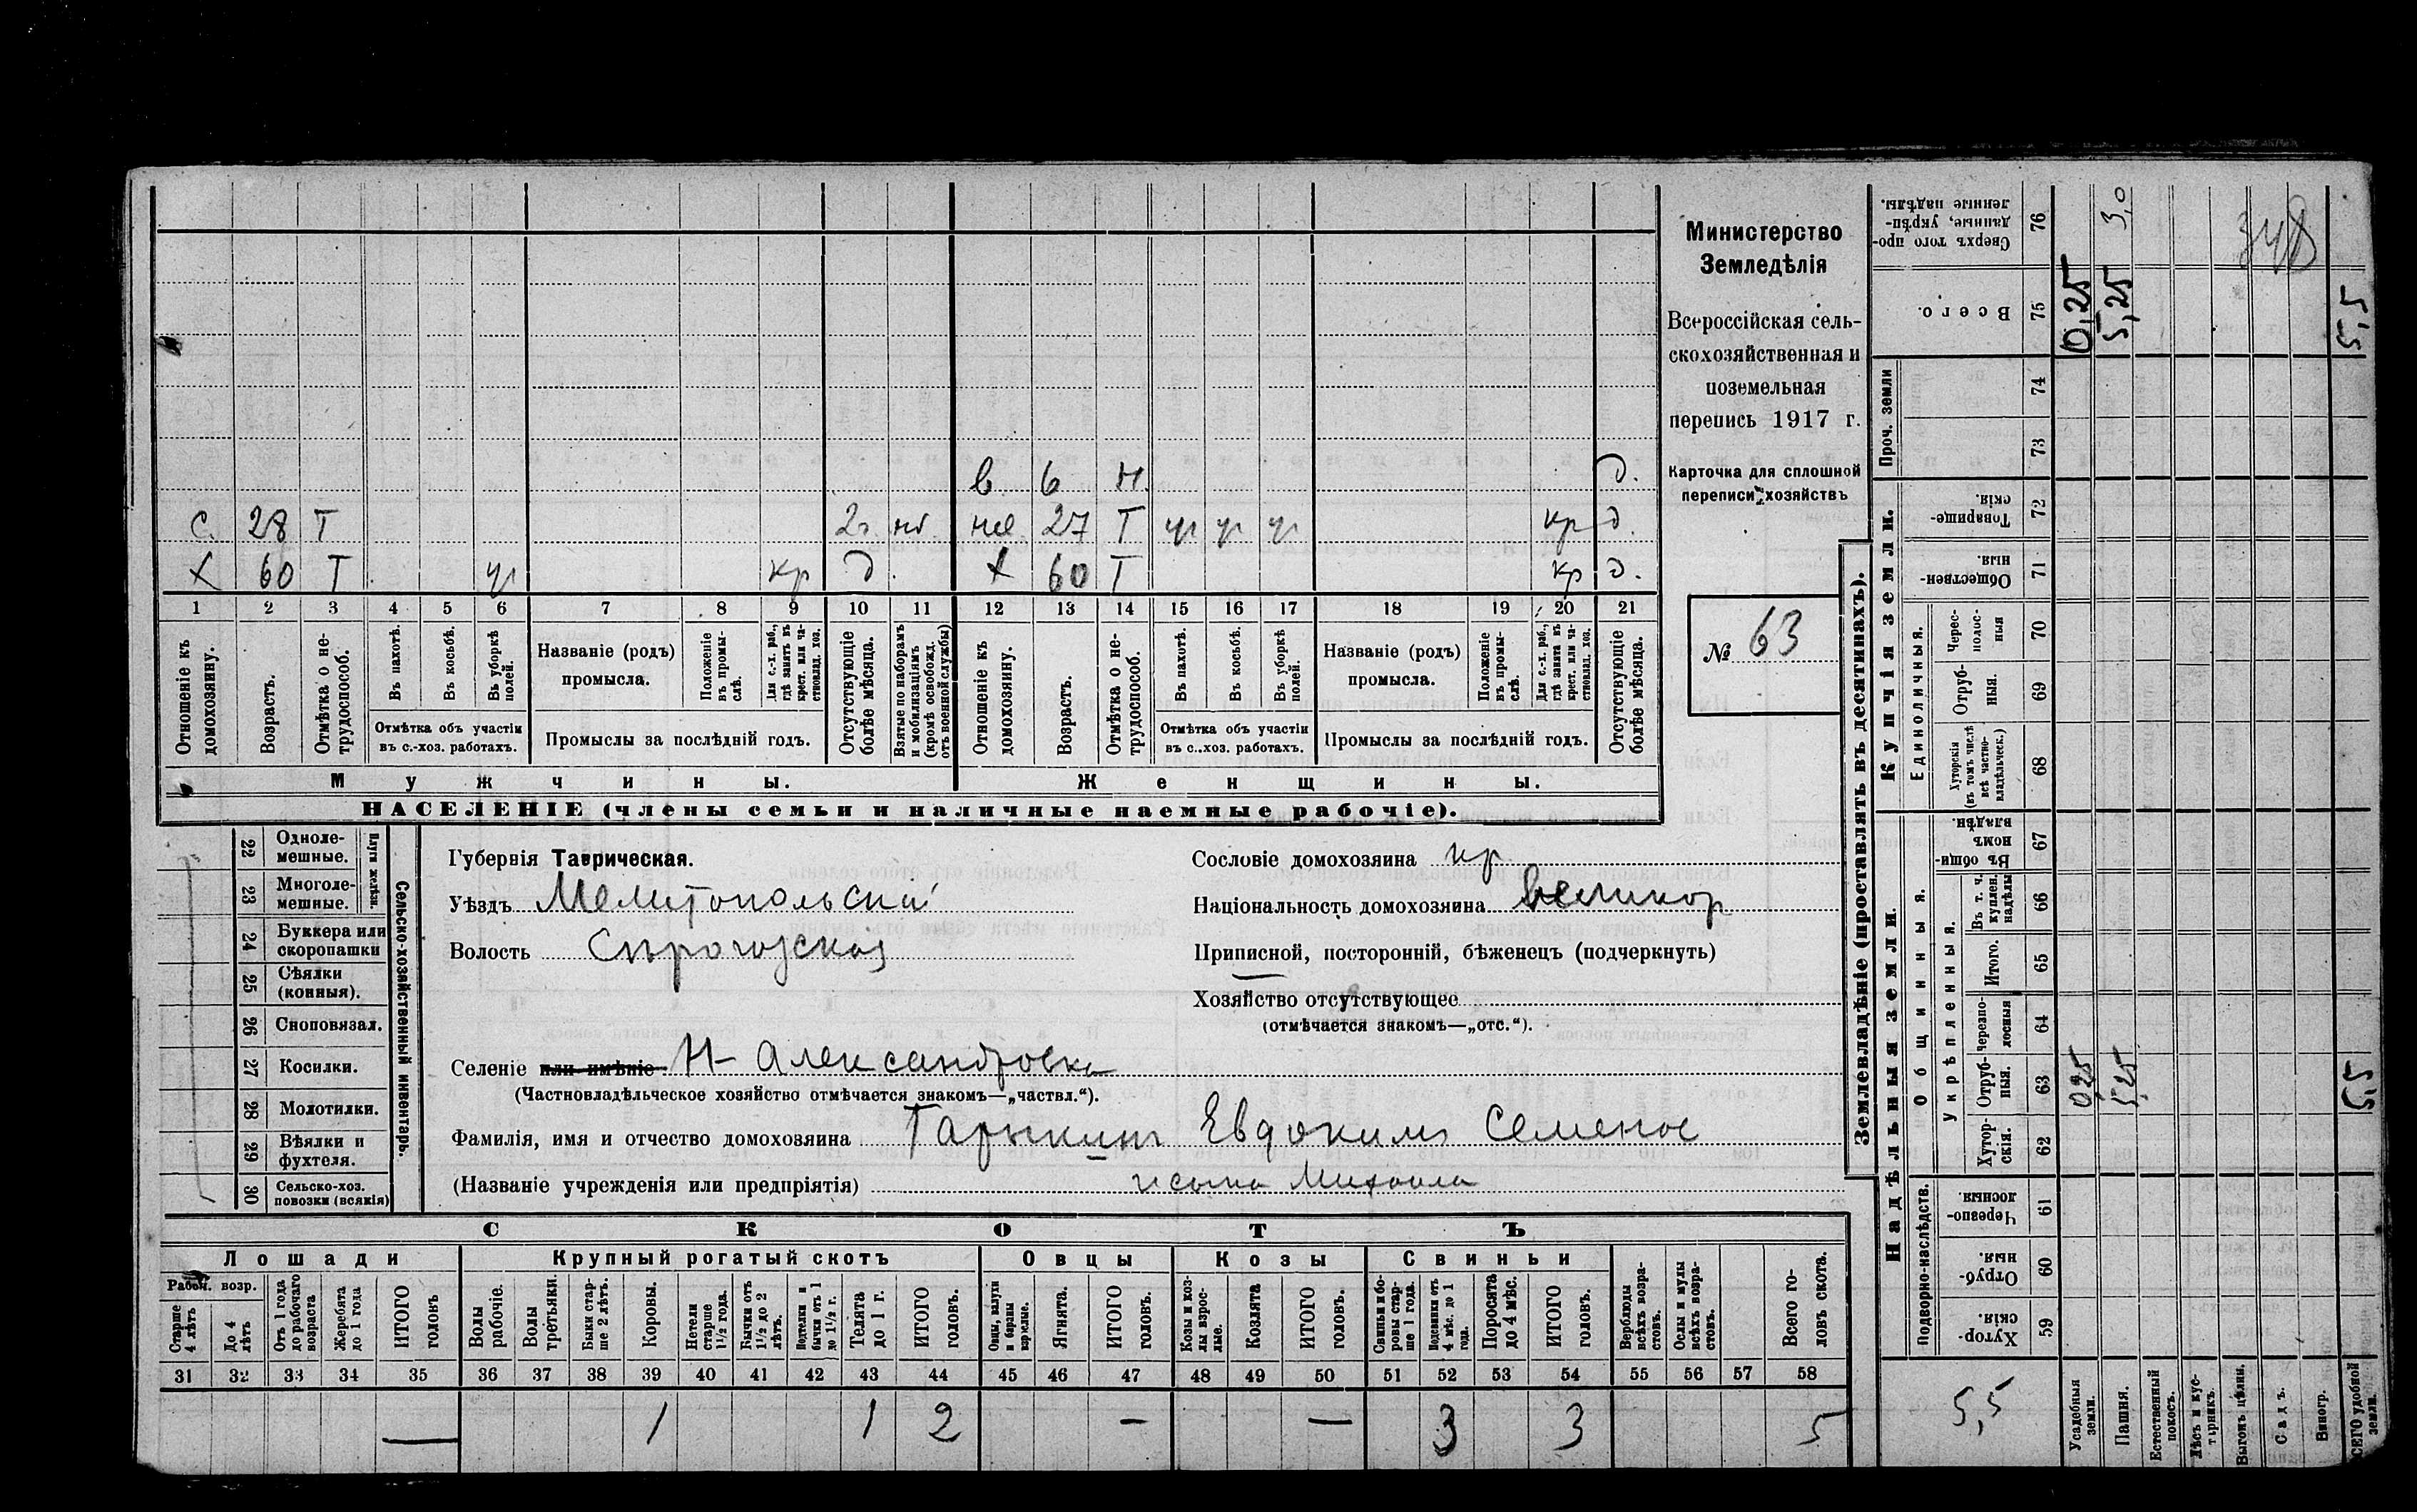 в 6 н. д.
с. 28 Т 2г. нб нев 27 Т уч уч уч кр д.
х 60 Т уч кр д. х 60 Т кр д.
1 2 3 4 5 6 7 8 9 10 11 12 13 14 15 16 17 18 19 20 21
Отношеніе къ домохозяину.
Возрастъ.
Отмѣтка о нетрудоспособ.
Въ пахотѣ.
Въ косьбѣ.
Въ уборкѣ полей.
Отмѣтка объ участіи въ с.-хоз. работахъ.
Названіе (родъ) промысла.
Положеніе въ промыслѣ.
Для с.-х. раб., гдѣ занятъ въ крест. или частновлад. хоз.
Промыслы за послѣдній годъ.
Отсутствующіе болѣе мѣсяца.
Взятые по наборамъ и мобилизаціямъ (кромѣ освобожд. отъ военной службы)
Отношеніе къ домохозяину.
Возрастъ.
Отмѣтка о нетрудоспособ.
Въ пахотѣ.
Въ косьбѣ.
Въ уборкѣ полей.
Отмѣтка объ участіи въ с..хоз. работахъ.
Названіе (родъ) промысла.
Положеніе въ промыслѣ.
Для с.-х. раб., гдѣ занята въ крест. или частновлад. хоз.
Промыслы за послѣдній годъ.
Отсутствующіе болѣе мѣсяца.
Мужчины. Женщины.
НАСЕЛЕНІЕ (члены семьи и наличные наемные рабочіе).
Министерство
Земледѣлія
Всероссійская сель-
скохозяйственная и
поземельная
перепись 1917 г.
Карточка для сплошной
переписи хозяйствъ
№ 63
22 Одноле-
мешные.
23 Многоле-
мешные.
Плуги желѣзн.
24 Буккера или
скоропашки
25 Сѣялки
(конныя).
26 Сноповязал.
27 Косилки.
28 Молотилки.
29 Вѣялки и
фухтеля.
30 Сельско-хоз.
повозки (всякія)
Сельско-хозяйственный инвентарь.
Губернія Таврическая.
Уѣздъ Мелитопольскій
Волость Сѣрогозская
Сословіе домохозяина кр
Національность домохозяина великор
Приписной, посторонній, бѣженецъ (подчеркнуть)
Хозяйство отсутствующее
(отмѣчается знакомъ—„отс.“).
Селеніе или имѣніе Н-Александровка
(Частновладѣльческое хозяйство отмѣчается знакомъ—„частвл.“).
Фамилія, имя и отчество домохозяина Евдокимъ Семенов
(Названіе учрежденія или предпріятія) и сына Михаила
СКОТЪ
Лошади Крупный рогатый скотъ Овцы Козы Свиньи
Рабоч. возр.
Старше 4 лѣтъ
До 4 лѣтъ
Отъ 1 года до рабочаго возраста
Жеребята до 1 года
ИТОГО головъ
Волы рабочіе.
Волы третьяки.
Быки старше 2 лѣтъ.
Коровы.
Нетели старше 1½ года.
Бычки отъ 1½ до 2 лѣтъ.
Подтелки и бычки отъ 1 до 1½ г.
Телята до 1 г.
ИТОГО головъ.
Овцы, валухи и бараны взрослые.
Ягнята.
ИТОГО головъ.
Козы и козлы взрослые.
Козлята
ИТОГО головъ.
Свиньи и боровы старше 1 года.
Подсвинки отъ 4 мѣс. до 1 года.
Поросята до 4 мѣс.
ИТОГО головъ.
Верблюды всѣхъ возрастовъ.
Ослы и мулы всѣхъ возрастовъ.
Всего головъ скота.
31 32 33 34 35 36 37 38 39 40 41 42 43 44 45 46 47 48 49 50 51 52 53 54 55 56 57 58
— 1 1 2 — — 3 3 5
Землевладѣніе (проставлять въ десятинахъ).
Сверхъ того проданные, укрѣпленные надѣлы. 76 3,0
348
Всего. 75 0,25 5,25 5,5
Проч. земли 74 73
Купчія земли.
Товарищескія. 72
Общественныя 71
Единоличныя.
Чересполосныя 70
Отрубныя. 69
Хуторскія (въ томъ числѣ всѣ частновладѣльческ.) 68
Надѣльныя земли.
Общинныя.
Въ общиномъ владѣн. 67
Укрѣпленныя.
Въ т. ч. куплен. надѣлы 66
Итого. 65
Черезполосныя 64
Отрубныя. 63 0,25 5,25 5,5
Хуторскія. 62
Подворно-наслѣдств.
Черезполосныя. 61
Отрубныя. 60
Хуторскія 59
5,5
Усадебныя земли.
Пашня.
Естественный покосъ.
Лѣсъ и кустарникъ.
Выгонъ цѣлин.
Садъ.
Виногр.
ВСЕГО удобной земли.